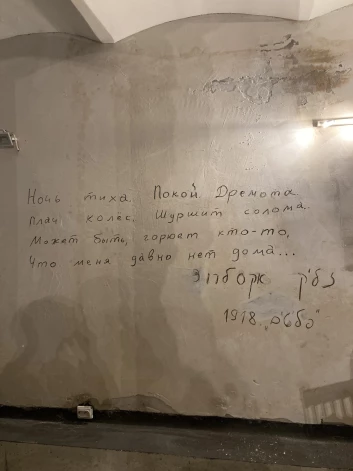 Ночь тиха. Покой. Дремота.
Плач колес. Шуршит солома.
Может быть, горюет кто-то,
Что меня давно нет дома...
זליק אקסלרוד
1918